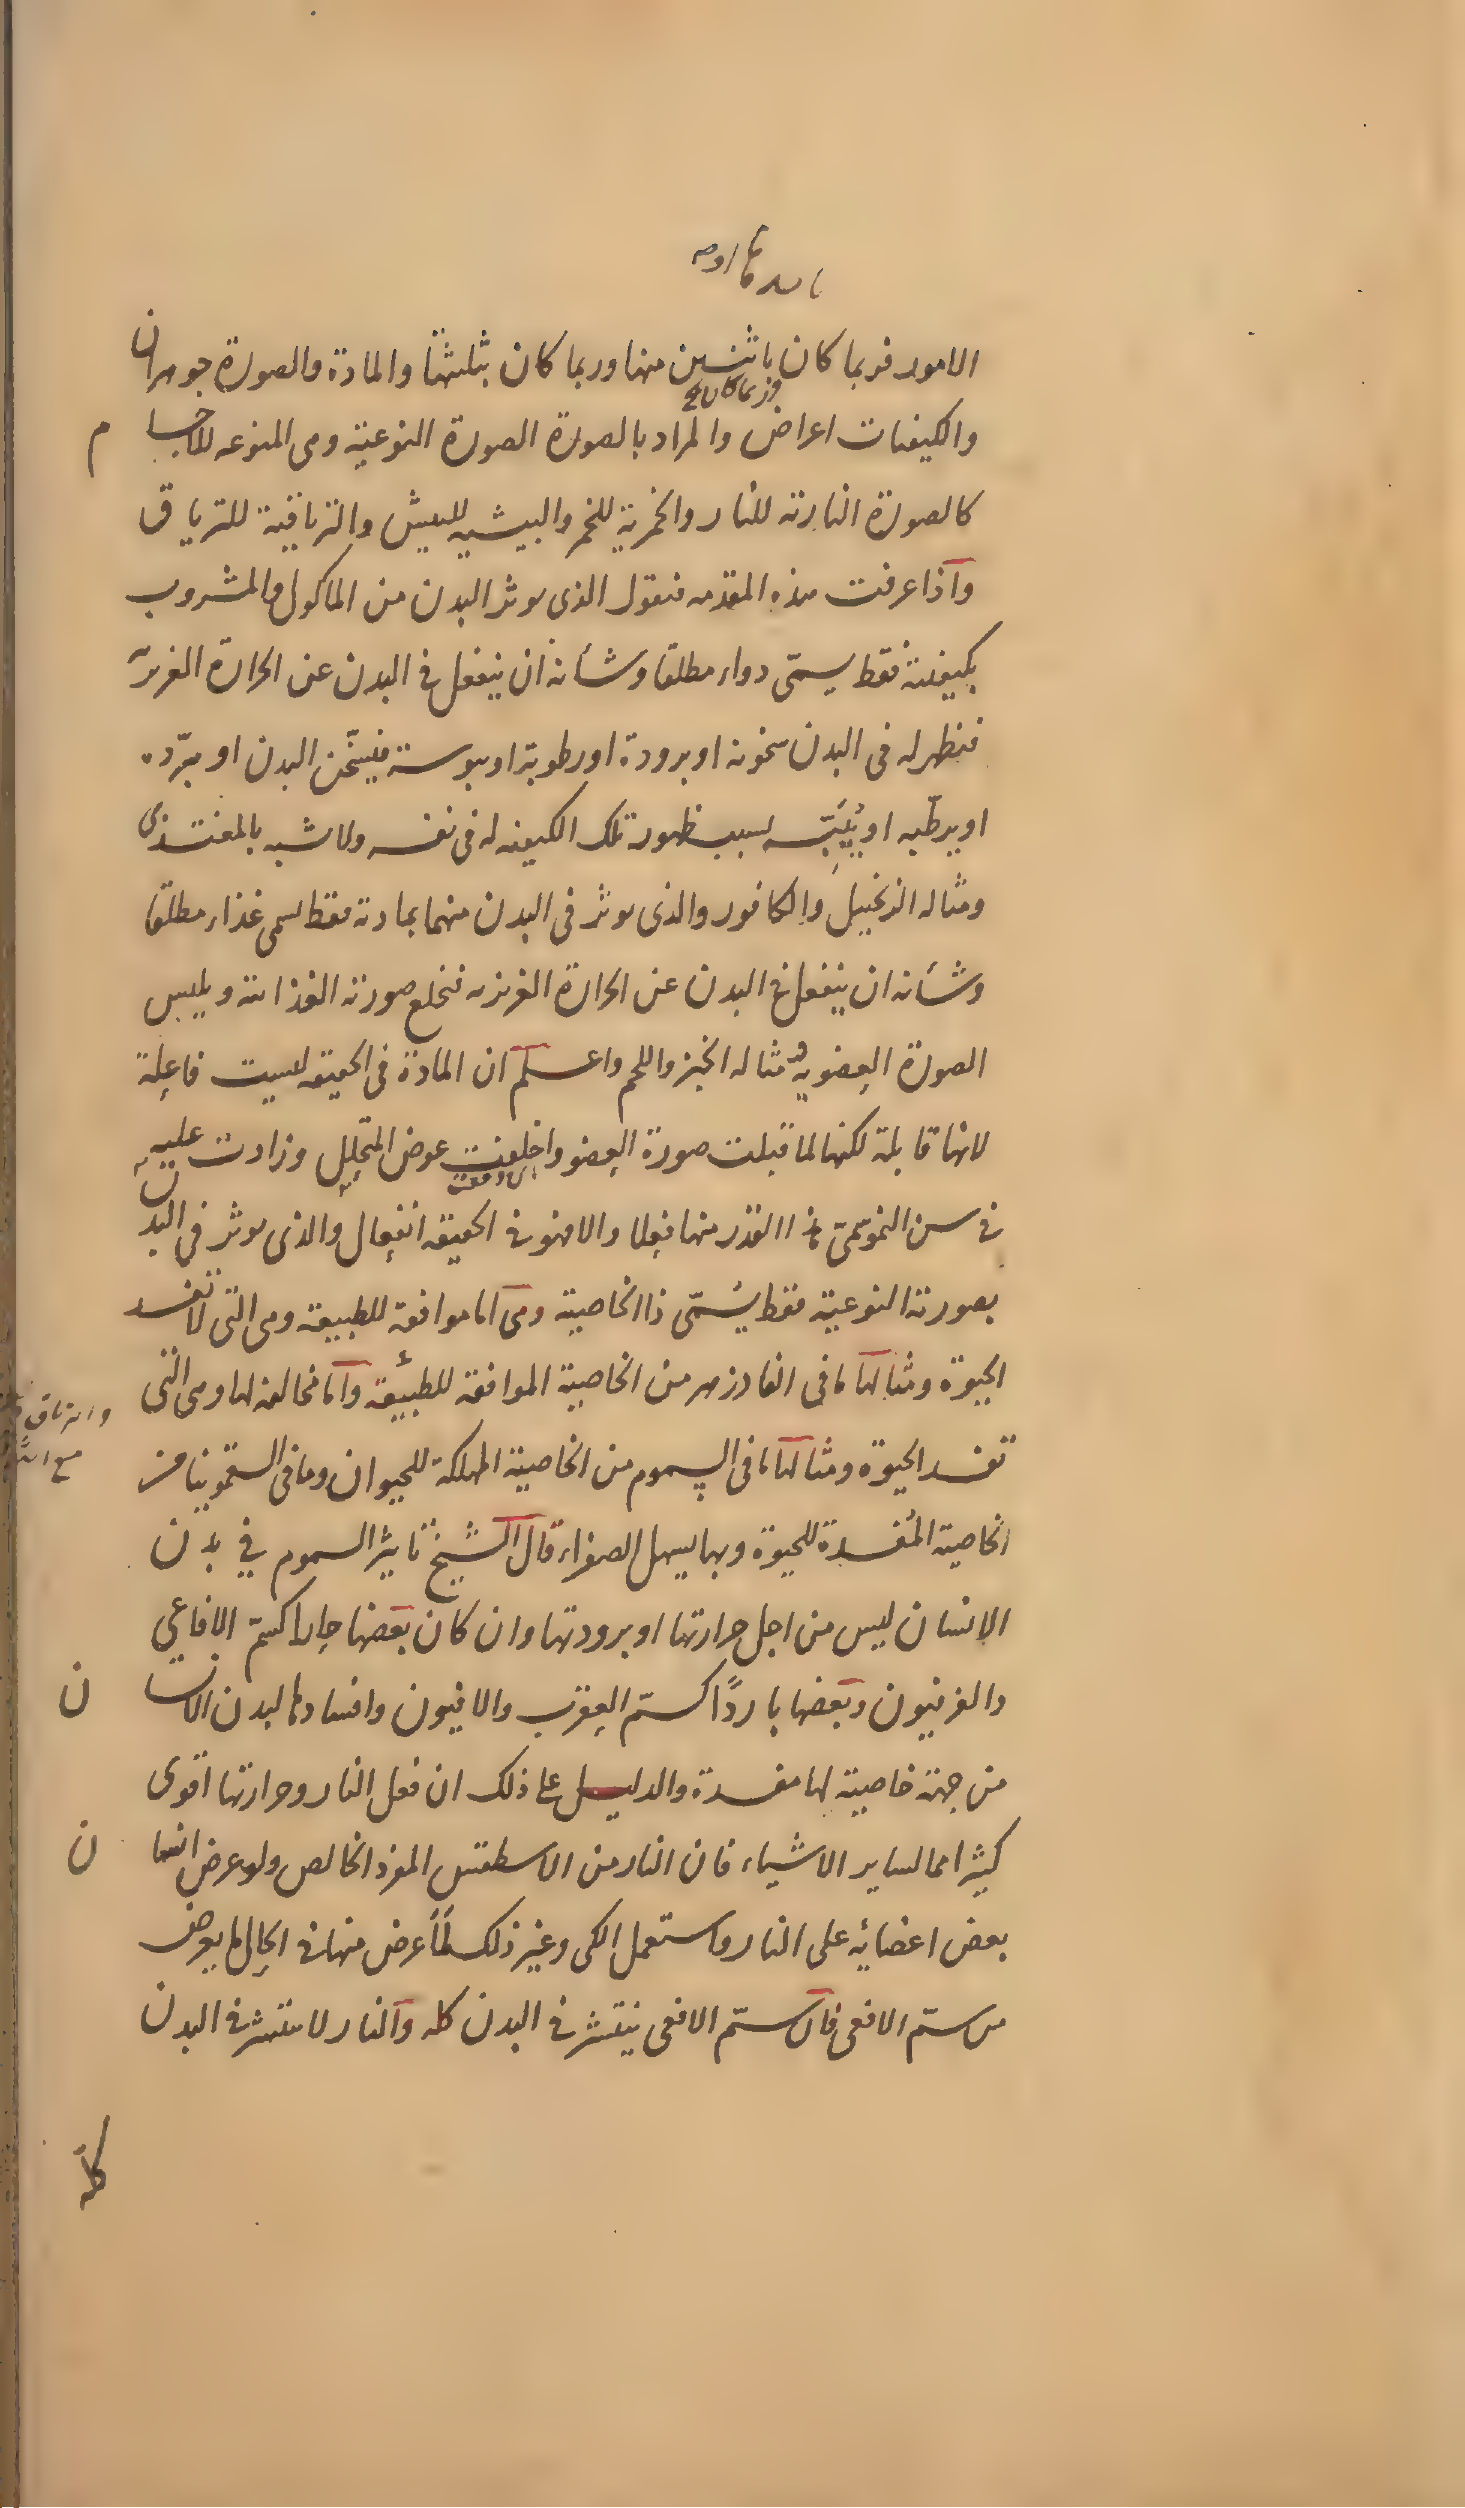 الامور فربما كان باثنين منها وربما كان بثلثتها والمادة والصورة جوهران
والكيفيات اعراض والمراد بالصورة الصورة النوعية وهى المنوعه للاجسام
كالصورة النارية للنار والخمرية للخمر والبيشيه للبيش والترياقية للترياق
واذا عرفت هذه المقدمه فنقول الذى يوثر البدن من الماكول والمشروب
بكيفيته فقط يسمّى دواء مطلقا وشأنه ان ينفعل فى البدن عن الحرارة الغريزية
فيظهر له فى البدن سخونة او برودة او رطوبة او يبوسة فيسخّن البدن او يبرّده
او يرطّبه او يُيَبِّسه بسبب ظهور تلك الكيفيه له فى نفسه ولا شبه بالمغتذى
ومثاله الزنجبيل والكافور والذى يوثر فى البدن منهما بمادته فقط يسمى غذاء مطلقا
وشأنه ان ينفعل فى البدن عن الحرارة الغريزيه فيخلع صورته الغذائية ويلبس
الصورة العضوية مثاله الخبز واللحم واعلم ان المادة فى الحقيقه ليست فاعلة
لانها قابلة لكنها لما قبلت صورة العضو واخلفت عوض المتحلل وزادت عليه
فى سن النمو سمّى هذا القدر منها فعلا والا فهو فى الحقيقه انفعال والذى يوثر فى البدن
بصورته النوعية فقط يُسمّى ذا الخاصية وهى اما موافقة للطبيعة وهى التى لا تفسد
الحيوة ومثالها ما فى الفادزهر من الخاصية الموافقة للطبيعة واما مخالفة لها وهى التى
تفسد الحيوة ومثالها ما فى السموم من الخاصية المهلكة للحيوان وما فى السقمونيا من
الخاصية المُفسدة للحيوة وبها يسهل الصفراء قال الشيخ تاثير السموم فى بدن
الانسان ليس من اجل حرارتها او برودتها وان كان بعضها حارا كسمّ الافاعى
والفربيون وبعضها باردًا كسمّ العقرب والافيون وافسادها لبدن الانسان
من جهة خاصية لها مفسدة والدليل على ذلك ان فعل النار وحرارتها اقوى
كثيرا مما لساير الاشياء فان النار من الاسطقس المفرد الخالص ولو عرض انسان
بعض اعضائه على النار واستعمل الكى وغير ذلك لما عرض منها فى الحال ما يعرض
من سمّ الافعى فان سمّ الافعى ينتشر فى البدن كله والنار لا تنتشر فى البدن
كله